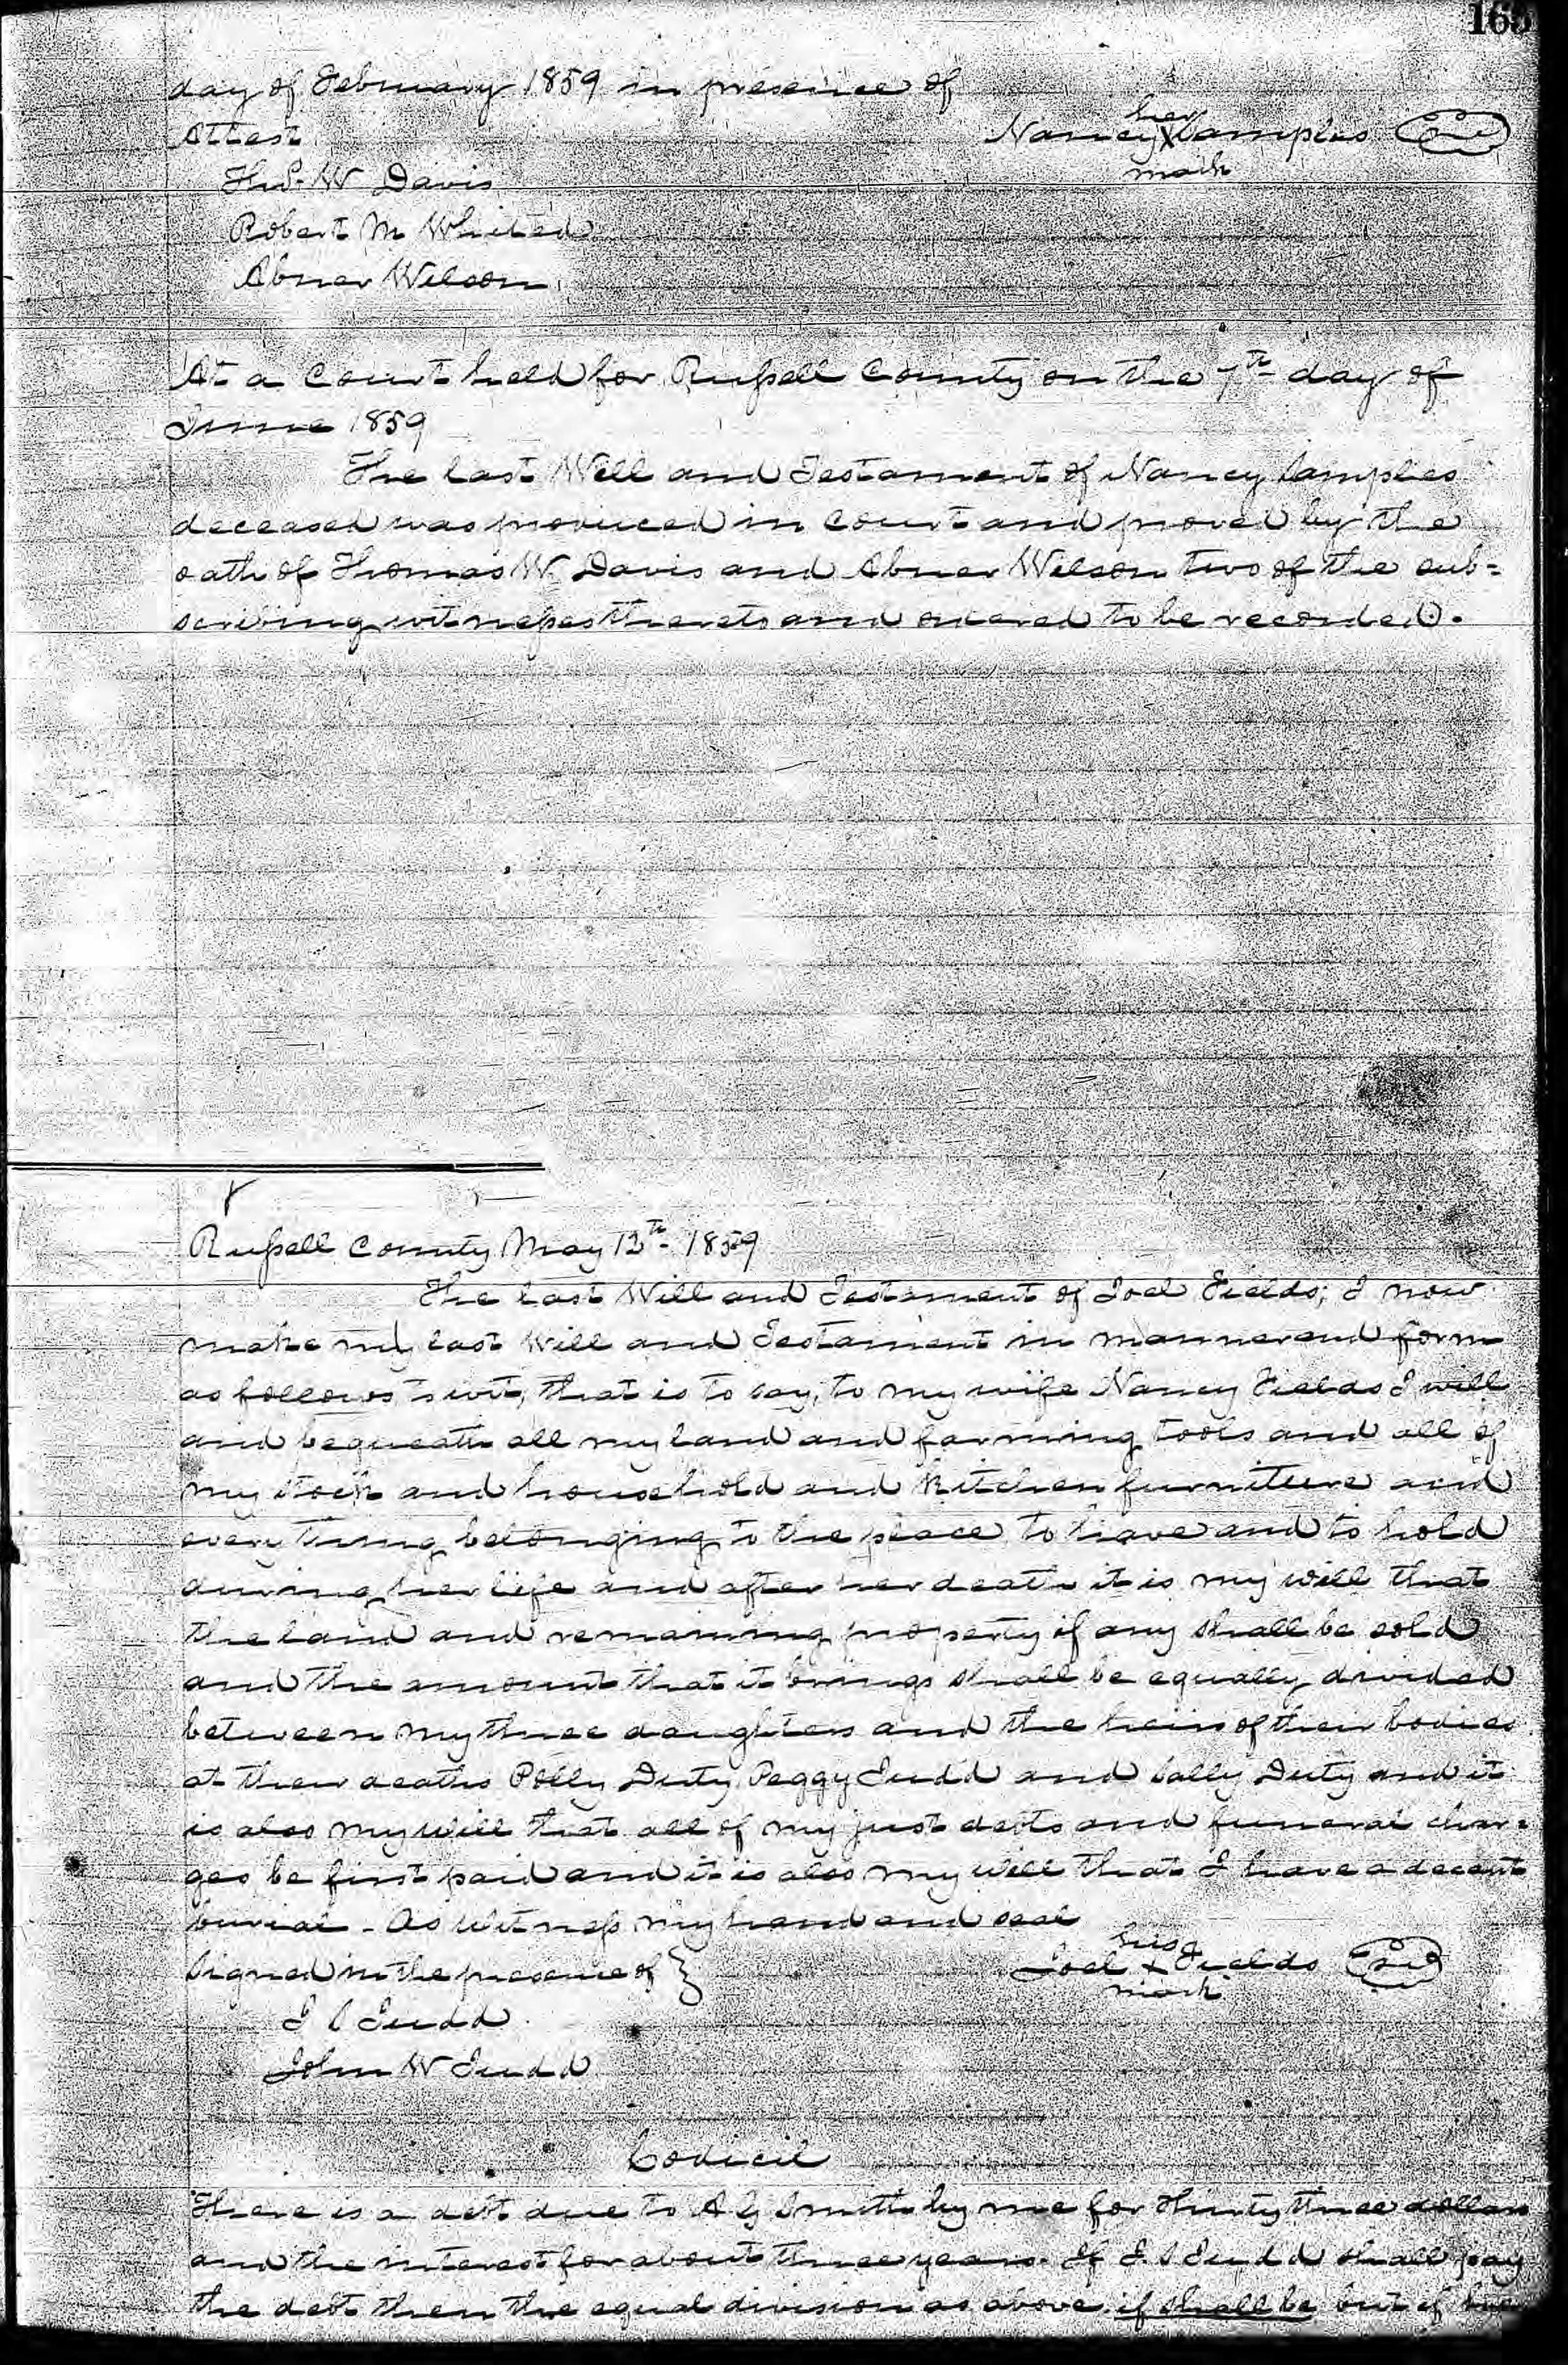 165
day of February 1859 in presence of
Attest
her
Nancy X Samples
mark
Thos. W Davis
Robert M Whited
Abner Wilson
At a Court held for Russell County on the 7th day of
June 1859
The last Will and Testament of Nancy Samples
deceased was produced in Court and proved by the
oath of Thomas W Davis and Abner Wilson two of the sub=
scribing witnesses thereto and ordered to be recorded.
Russell County May 13th 1859
The last Will and Testament of Joel Fields; I now
make my last Will and Testament in manner and form
as follows towit, that is to say, to my wife Nancy Fields I will
and bequeath all my land and farming tools and all of
my stock and household and kitchen furniture and
every thing belonging to the place to have and to hold
during her life and after her death it is my will that
the land and remaining property if any shall be sold
and the amount that it brings shall be equally divided
between my three daughters and the heirs of their bodies
at their deaths Polly Duty Peggy Judd and Sally Duty and it
is also my will that all of my just debts and funeral char=
ges be first paid and it is also my will that I have a decent
burial - As Witness my hand and seal
Signed in the presence of }
his
Joel + Fields
mark
J S Judd
John W Judd
Codicil
There is a debt due to A G Smith by me for Thirty three dollars
and the interest for about three years. If J S Judd shall pay
the debt then the equal division as above if shall be but if